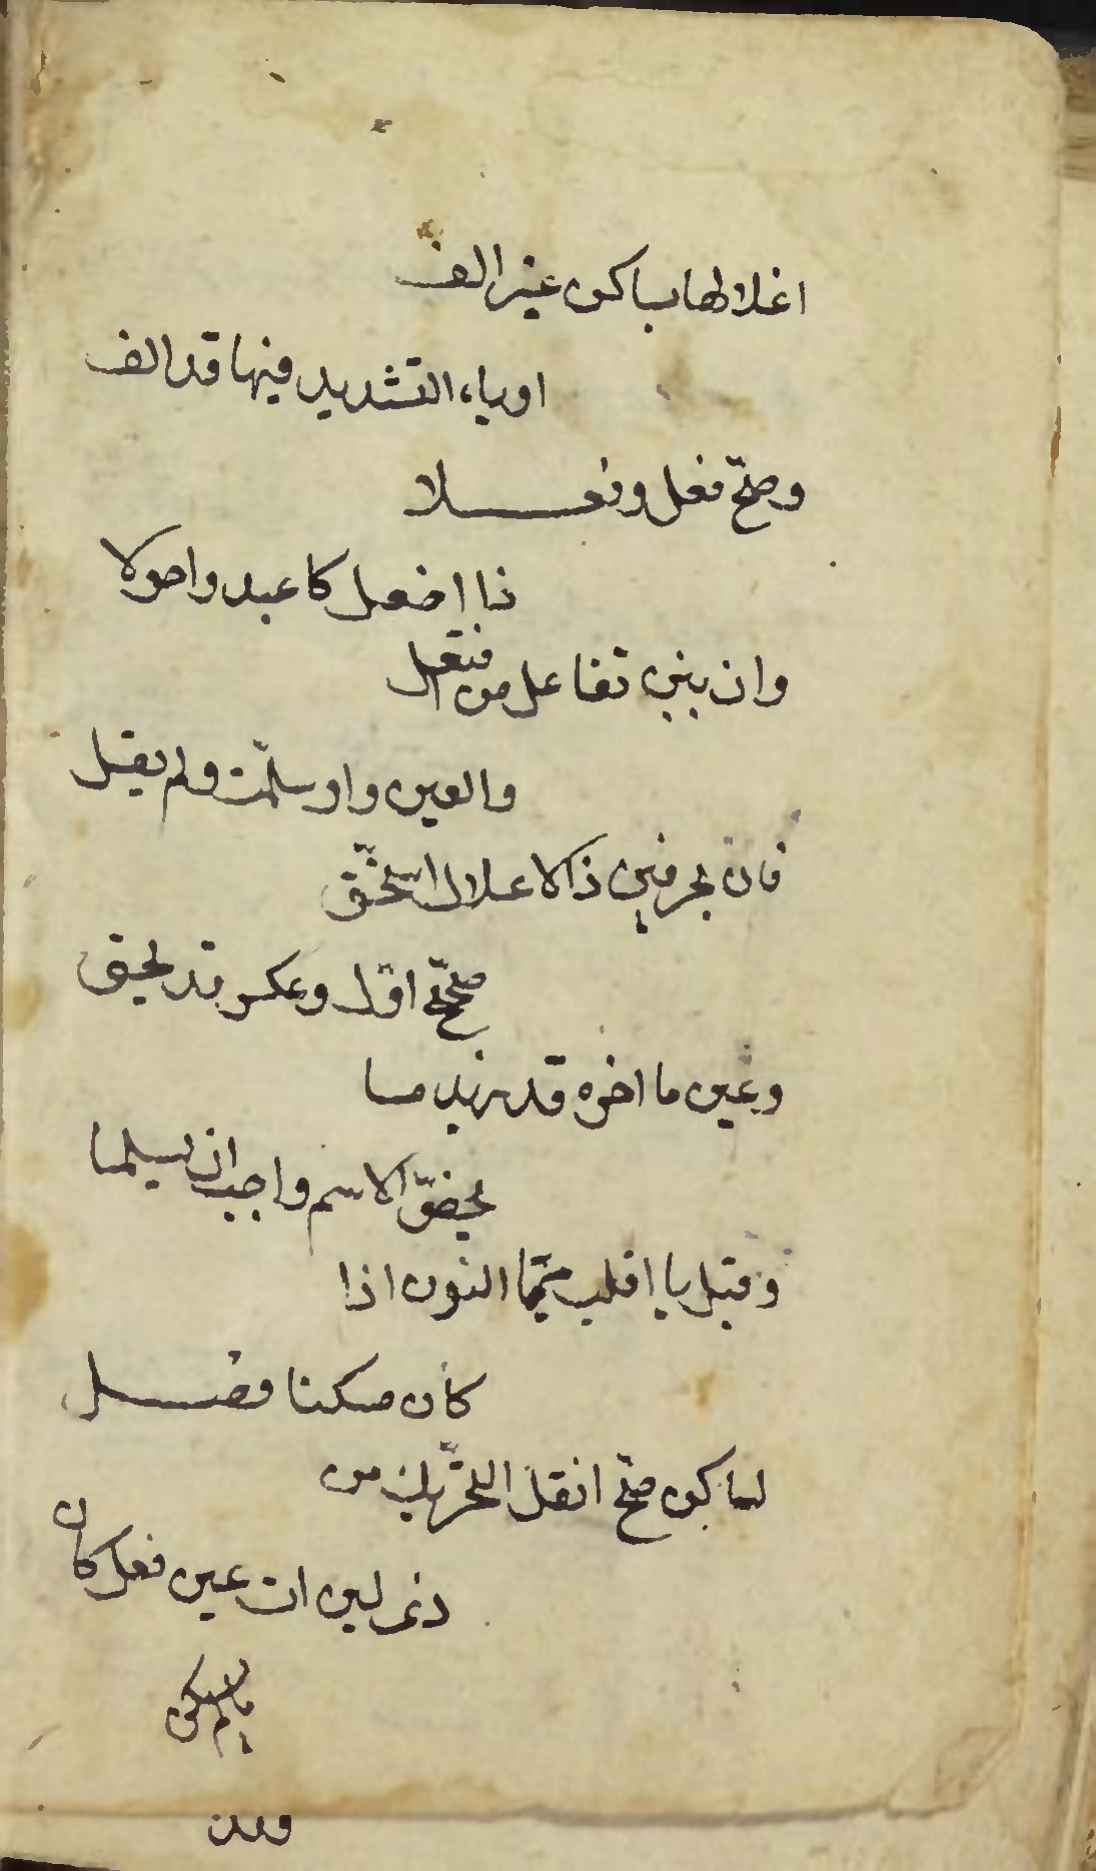 اعلالها بساكن غير الف
او ياء التشديد فيها قد الف
وصحّ فعل وفعلا
ذا افعل كاغيد واحولا
وان يبن تفاعل من افتعل
والعين واو سلّمت ولم يعل
فان بحرفين ذا الاعلال استحقّ
صحّح اوّل وعكس قد يحق
وعين ما اخره قد زيد ما
يخصّ الاسم واجب ان يسلما
وقبل با اقلب ميما النون اذا
كان مسكنا
لساكن صحّ انقل التحريك من
ذى لين ات عين فعل كان
مالم يكن